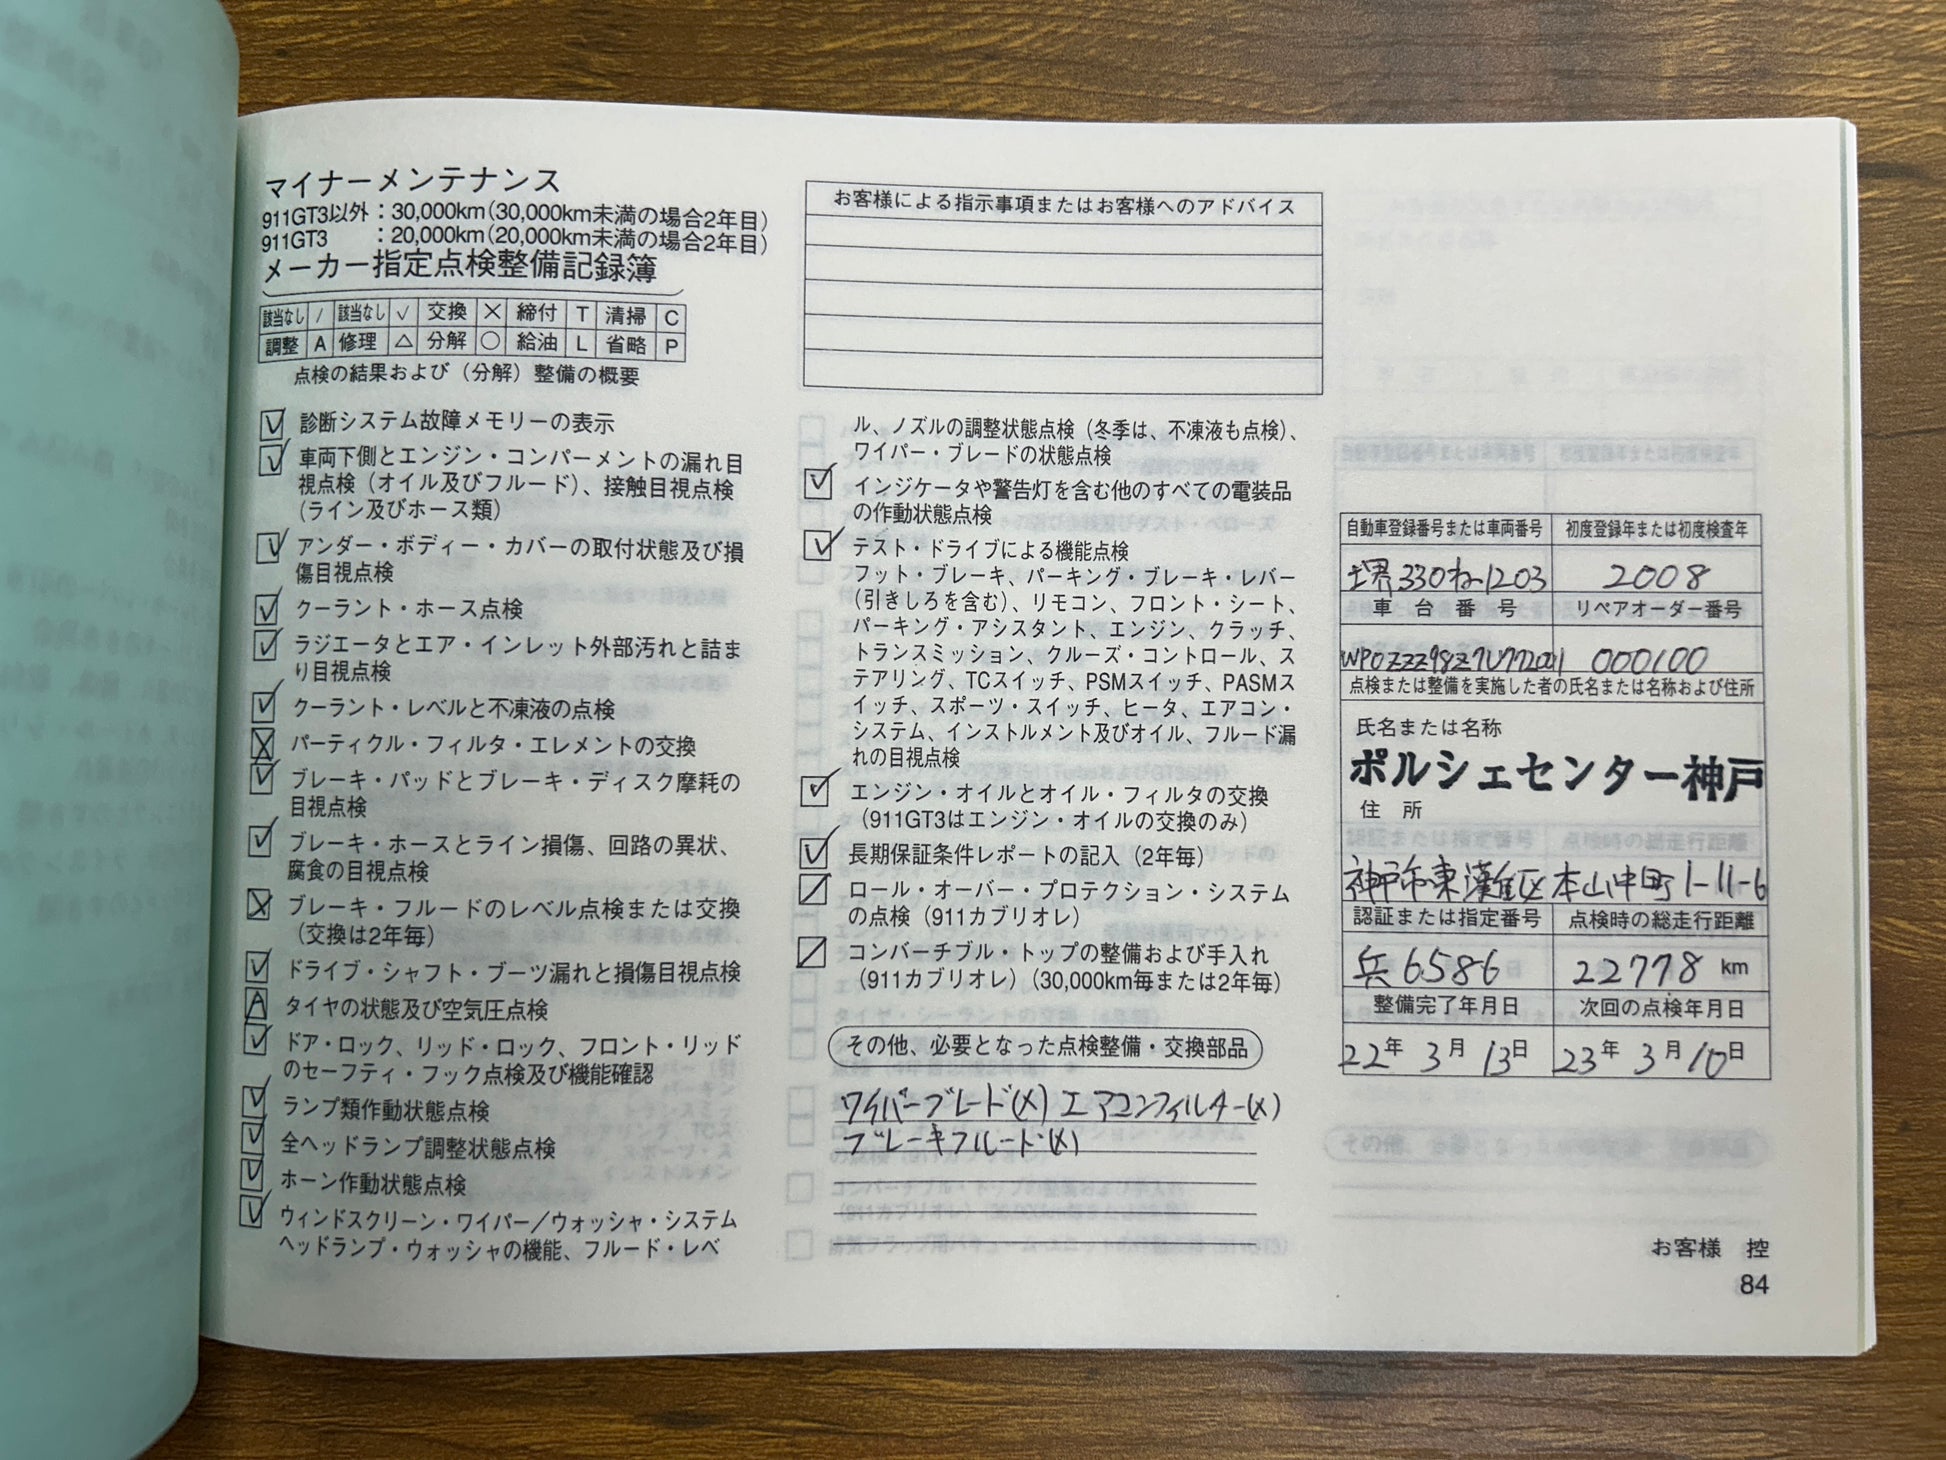 マイナーメンテナンス
911GT3以外：30,000km（30,000km未満の場合2年目）
911GT3　　：20,000km（20,000km未満の場合2年目）
メーカー指定点検整備記録簿
該当なし / 該当なし √ 交換 × 締付 T 清掃 C
調整 A 修理 △ 分解 ○ 給油 L 省略 P
点検の結果および（分解）整備の概要
診断システム故障メモリーの表示
車両下側とエンジン・コンパーメントの漏れ目
視点検（オイル及びフルード）、接触目視点検
（ライン及びホース類）
アンダー・ボディー・カバーの取付状態及び損
傷目視点検
クーラント・ホース点検
ラジエータとエア・インレット外部汚れと詰ま
り目視点検
クーラント・レベルと不凍液の点検
パーティクル・フィルタ・エレメントの交換
ブレーキ・パッドとブレーキ・ディスク摩耗の
目視点検
ブレーキ・ホースとライン損傷、回路の異状、
腐食の目視点検
ブレーキ・フルードのレベル点検または交換
（交換は2年毎）
ドライブ・シャフト・ブーツ漏れと損傷目視点検
A タイヤの状態及び空気圧点検
ドア・ロック、リッド・ロック、フロント・リッド
のセーフティ・フック点検及び機能確認
ランプ類作動状態点検
全ヘッドランプ調整状態点検
ホーン作動状態点検
ウィンドスクリーン・ワイパー／ウォッシャ・システム
ヘッドランプ・ウォッシャの機能、フルード・レベ
お客様による指示事項またはお客様へのアドバイス
ル、ノズルの調整状態点検（冬季は、不凍液も点検）、
ワイパー・ブレードの状態点検
インジケータや警告灯を含む他のすべての電装品
の作動状態点検
テスト・ドライブによる機能点検
フット・ブレーキ、パーキング・ブレーキ・レバー
（引きしろを含む）、リモコン、フロント・シート、
パーキング・アシスタント、エンジン、クラッチ、
トランスミッション、クルーズ・コントロール、ス
テアリング、TCスイッチ、PSMスイッチ、PASMス
イッチ、スポーツ・スイッチ、ヒータ、エアコン・
システム、インストルメント及びオイル、フルード漏
れの目視点検
エンジン・オイルとオイル・フィルタの交換
（911GT3はエンジン・オイルの交換のみ）
長期保証条件レポートの記入（2年毎）
ロール・オーバー・プロテクション・システム
の点検（911カブリオレ）
コンバーチブル・トップの整備および手入れ
（911カブリオレ）（30,000km毎または2年毎）
その他、必要となった点検整備・交換部品
ワイパーブレード(×) エアコンフィルター(×)
ブレーキフルード(×)
自動車登録番号または車両番号 初度登録年または初度検査年
堺330ね1203 2008
車台番号 リペアオーダー番号
000100
点検または整備を実施した者の氏名または名称および住所
氏名または名称
ポルシェセンター神戸
住所
神戸市東灘区本山中町1-11-6
認証または指定番号 点検時の総走行距離
兵6586 22778 km
整備完了年月日 次回の点検年月日
22年 3月 13日 23年 3月 10日
お客様 控
84